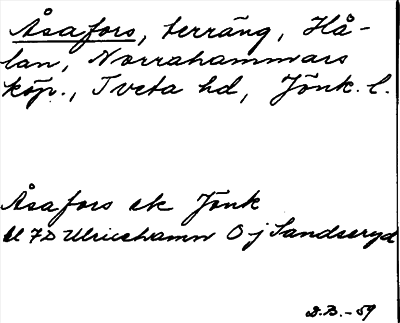 Åsafors, terräng, Hå-
lan, Norrahammars
köp., Tveta hd, Jönk. l.
Åsafors ek Jönk
Bl 7D Ulricehamn O j Sandseryd
D.B.-59